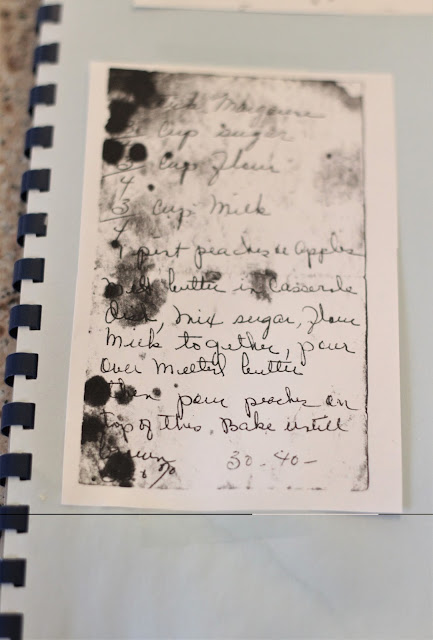 Margarine
cup sugar
3/4 cup Flour
3/4 cup Milk
1 pint peaches or apples
Melt butter in Casserole
Dish, Mix sugar, Flour
Milk together, pour
over Melted butter
then pour peaches on
top of this. Bake untill
brown 30-40-